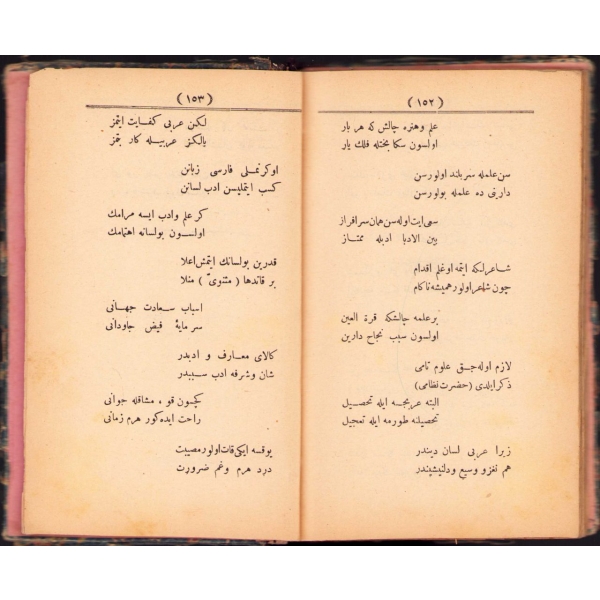 ( ١٥٢ )
علم وهنره چالش كه هر بار
اولسون سكا بختله فلك يار
سن علمله سربلند اولورسن
دارينى ده علمله بولورسن
سمى ايت اوله سن همان سرافراز
بين الادبا ادبله ممتاز
شاعرلكه ايتمه اوغلم اقدام
چون شاعر اولور هميشه ناكام
بر علمه چالشكه قرة العين
اولسون سبب نجاح دارين
لازم اوله جق علوم تامى
ذكر ايلدى (حضرت نظامى)
البته عربجه ايله تحصيل
تحصيلنه طورمه ايله تعجيل
زيرا عربى لسان ديندر
هم نغز و وسيع ودلنشيندر
( ١٥٣ )
لكن عربى كفايت ايتمز
يالكنز عربيله كار بتمز
اوكرنملى فارسى زبانن
كسب ايتمليسن ادب لسانن
كر علم وادب ايسه مرامك
اولسون بو لسانه اهتمامك
قدرين بو لسانك ايتمش اعلا
بر قاندها ( مثنوىّ ) منلا
اسباب سعادت جهانى
سرمايهٔ فيض جاودانى
كالاى معارف و ادبدر
شان وشرفه ادب سببدر
كچسون قو ، مشاقله جوانى
راحت ايده كور هرم زمانى
يوقسه ايكى قات اولور مصيبت
درد هرم وغم ضرورت